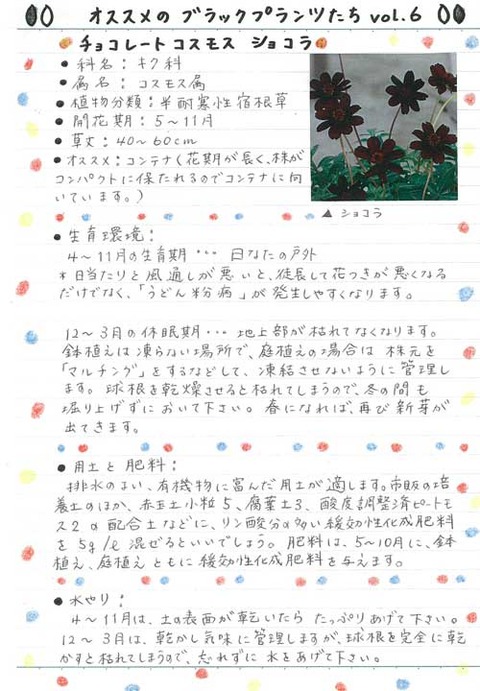 オススメの ブラックプランツたち vol.6
チョコレートコスモス ショコラ
• 科名：キク科
• 属名：コスモス属
• 植物分類：半耐寒性宿根草
• 開花期：5～11月
• 草丈：40～60cm
• オススメ：コンテナ（花期が長く、株が
コンパクトに保たれるのでコンテナに向
いています。）
▲ ショコラ
• 生育環境：
4～11月の生育期… 日なたの戸外
*日当たりと風通しが悪いと、徒長して花つきが悪くなる
だけでなく、「うどん粉病」が発生しやすくなります。
12～3月の休眠期… 地上部が枯れてなくなります。
鉢植えは凍らない場所で、庭植えの場合は 株元を
「マルチング」をするなどして、凍結させないように管理し
ます。球根を乾燥させると枯れてしまうので、冬の間も
堀り上げずに おいて下さい。春になれば、再び 新芽が
出てきます。
• 用土 と 肥料：
排水のよい、有機物に富んだ用土が適します。市販の培
養土のほか、赤玉土小粒5、腐葉土3、酸度調整済ピートモ
ス2の配合土などに、リン酸分の多い緩効性化成肥料
を 5g/ℓ 混ぜるといいでしょう。肥料は、5～10月に、鉢
植え、庭植え ともに 緩効性化成肥料を与えます。
• 水やり：
4～11月は、土の表面が乾いたら たっぷりあげて下さい。
12～3月は、乾かし気味に管理しますが、球根を完全に乾
かすと枯れてしまうので、忘れずに 水をあげて下さい。